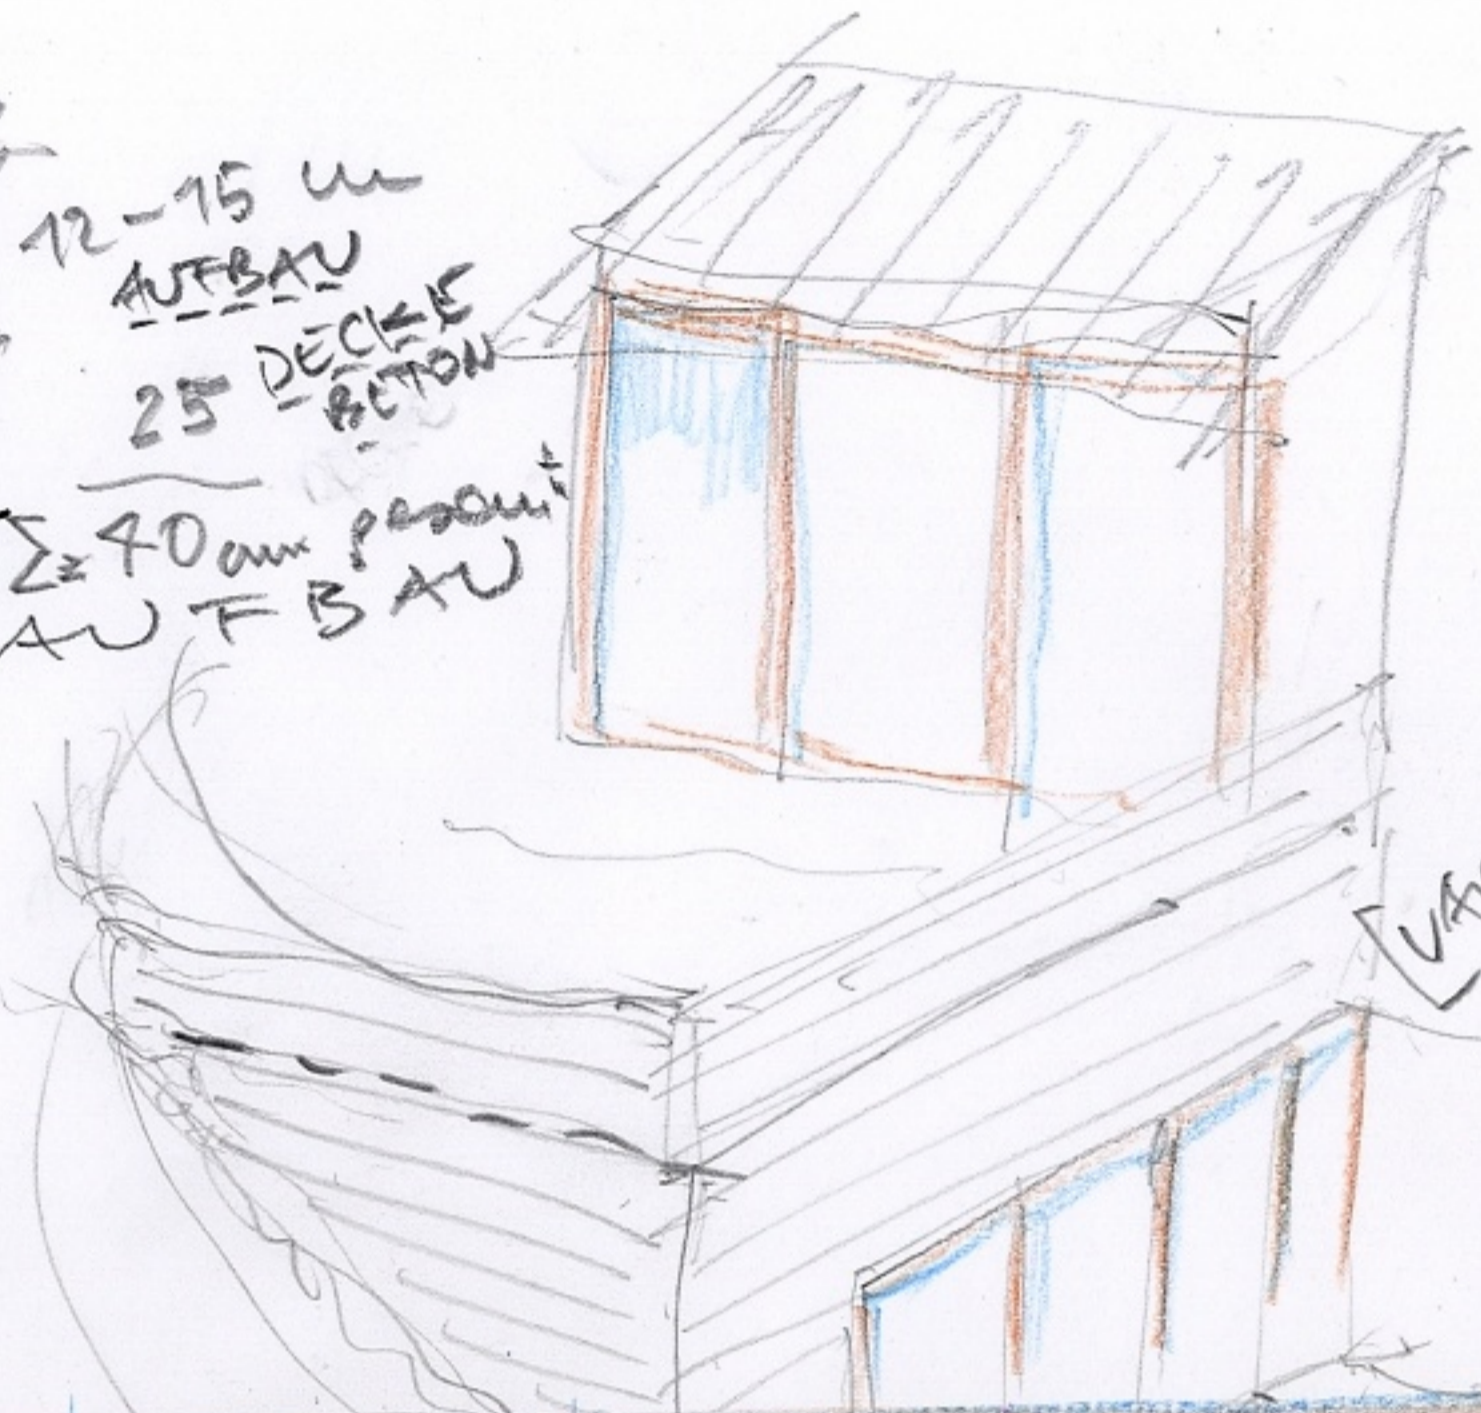 12-15 cm
AUFBAU
25 DECKE
BETON
Σ= 40 cm gesamt
AUFBAU